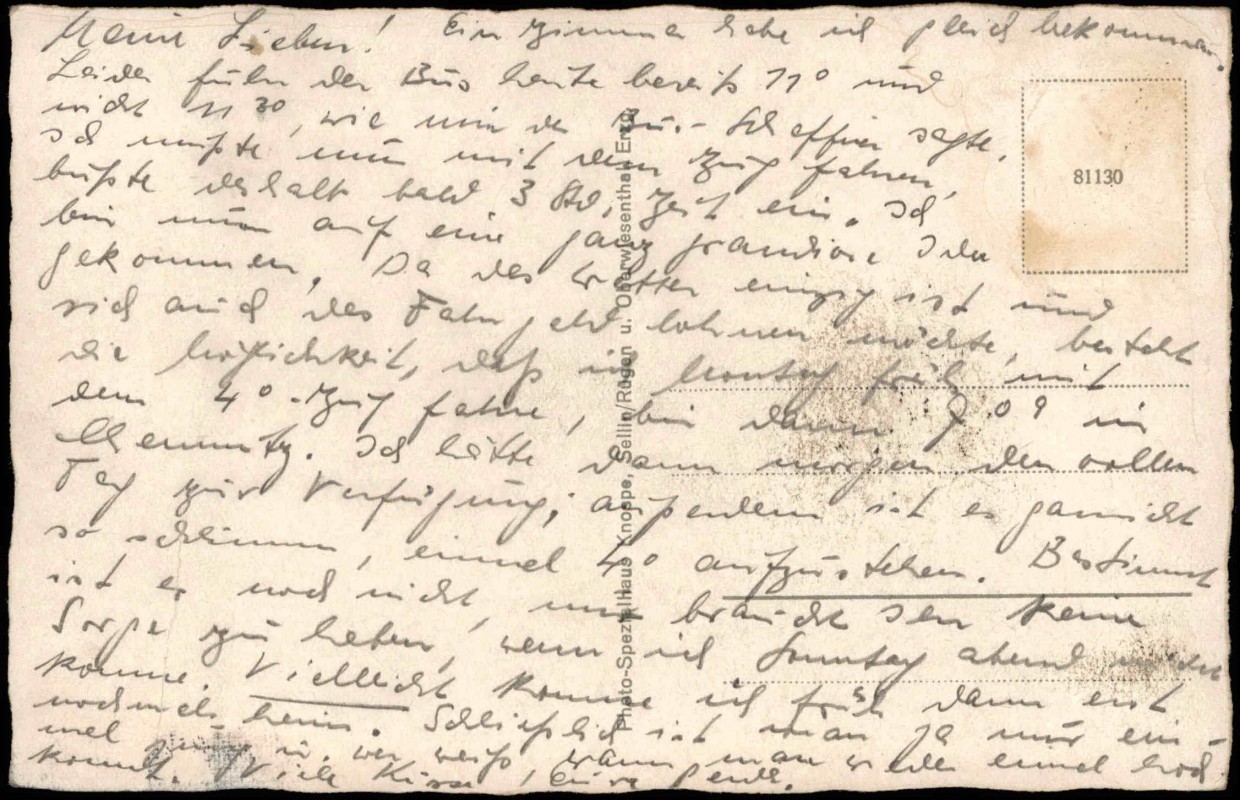 Meine Lieben! Ein Zimmer habe ich gleich bekommen.
Leider fuhr der Bus heute bereits 11⁰ und
nicht 11³⁰, wie mir der Bus-Schaffner sagte.
Ich mußte nun mit dem Zug fahren,
büßte deshalb bald 3 Std. Zeit ein. Ich
bin nun auf eine ganz grandiose Idee
gekommen. Da das Wetter einzig ist und
sich auch das Fahrgeld lohnen möchte, besteht
die Möglichkeit, daß ich Montag früh mit
dem 4⁰-Zug fahre, bin dann 7⁰⁹ in
Chemnitz. Ich hätte dann morgen den vollen
Tag zur Verfügung; außerdem ist es garnicht
so schlimm, einmal 4⁰ aufzustehen. Bestimmt
ist es noch nicht, nur braucht Ihr keine
Sorge zu haben, wenn ich Sonntag abend nicht
komme. Vielleicht komme ich früh dann erst
nochmals heim. Schließlich ist man ja nur ein-
mal jung u. wer weiß, wann man wieder einmal hoch
kommt. Viele Küsse, Eure
81130
Photo-Spezialhaus Knoppe, Sellin/Rügen u. Oberwiesenthal Erzg.